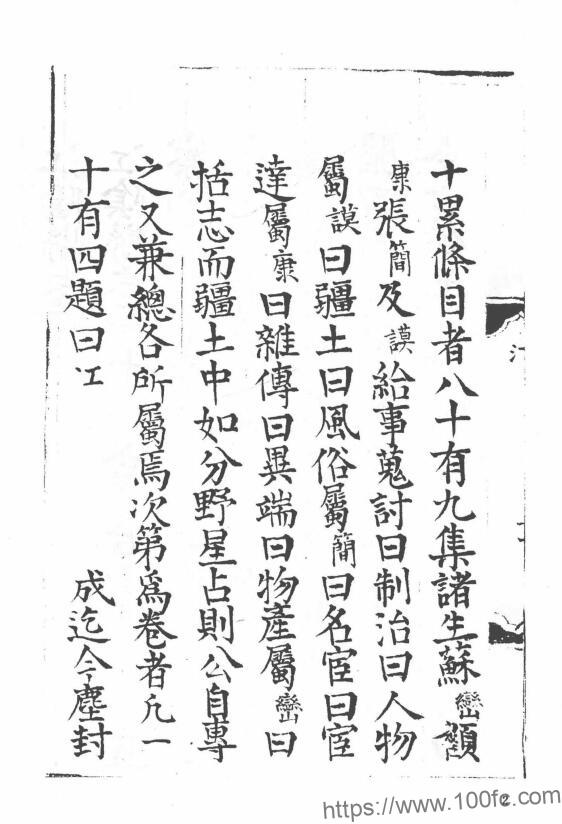 十累條目者八十有九集諸生蘇巒
康張簡及謨給事蒐討曰制治曰人物
屬謨曰疆土曰風俗屬簡曰名宦曰宦
達屬康曰雜傳曰異端曰物產屬巒曰
括志而疆土中如分野星占則公自專
之又兼總各所屬焉次第爲卷者凡一
十有四題曰江 成迄今塵封
2
https://www.100fe.com